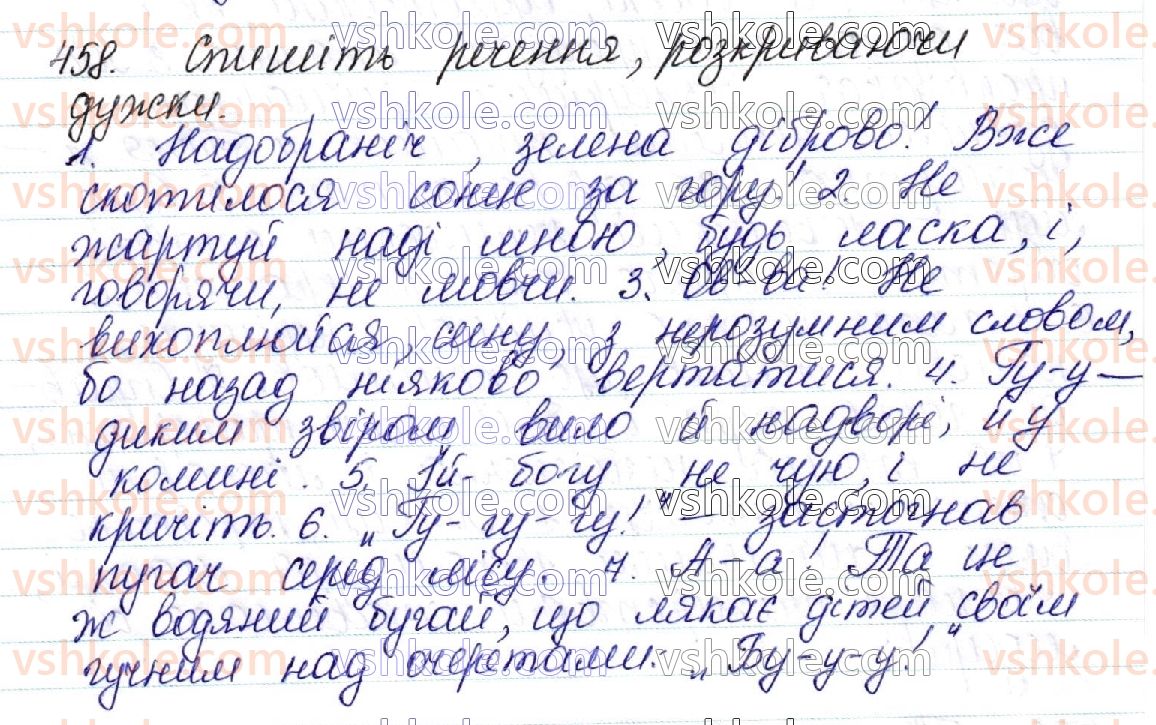 458. Спишіть речення, розкриваючи
дужки.
1. Надобраніч, зелена діброво! Вже
скотилося сонце за гору! 2. Не
жартуй наді мною, будь ласка, і,
говорячи, не мовчи. 3. Ов-ва! Не
вихоплюйся, сину, з нерозумним словом,
бо назад ніяково вертатися. 4. Гу-у —
диким звіром вило й надворі, й у
комині. 5. Їй-богу не чую, і не
кричіть. 6. „Гу-гу-гу!" — застогнав
пугач серед лісу. 7. А-а! Та це
ж водяний бугай, що лякає дітей своїм
гучним над очеретами: „Бу-у-у!"